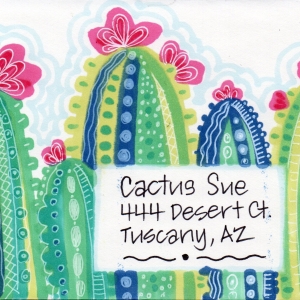 Cactus Sue
444 Desert Ct.
Tuscany, AZ